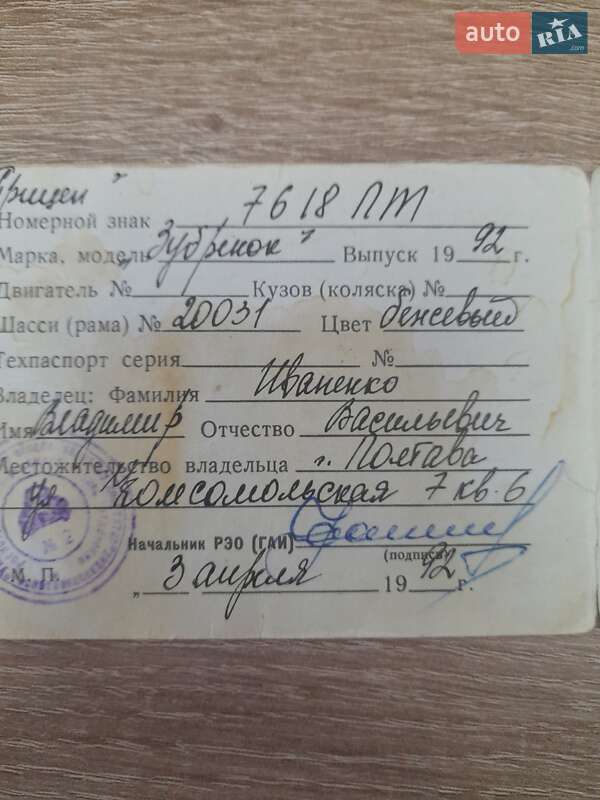 auto RIA .com
Прицеп "
Номерной знак 7618 ПТ
Марка, модель "Зубрёнок" Выпуск 1992 г.
Двигатель № Кузов (коляска) №
Шасси (рама) № 20031 Цвет бежевый
Техпаспорт серия № 
Владелец: Фамилия Иваненко
Имя Владимир Отчество Васильевич
Местожительство владельца г. Полтава
ул Комсомольская 7 кв. 6
Начальник РЭО (ГАИ)
(подпись)
М. П. „3 апреля 1992 г.